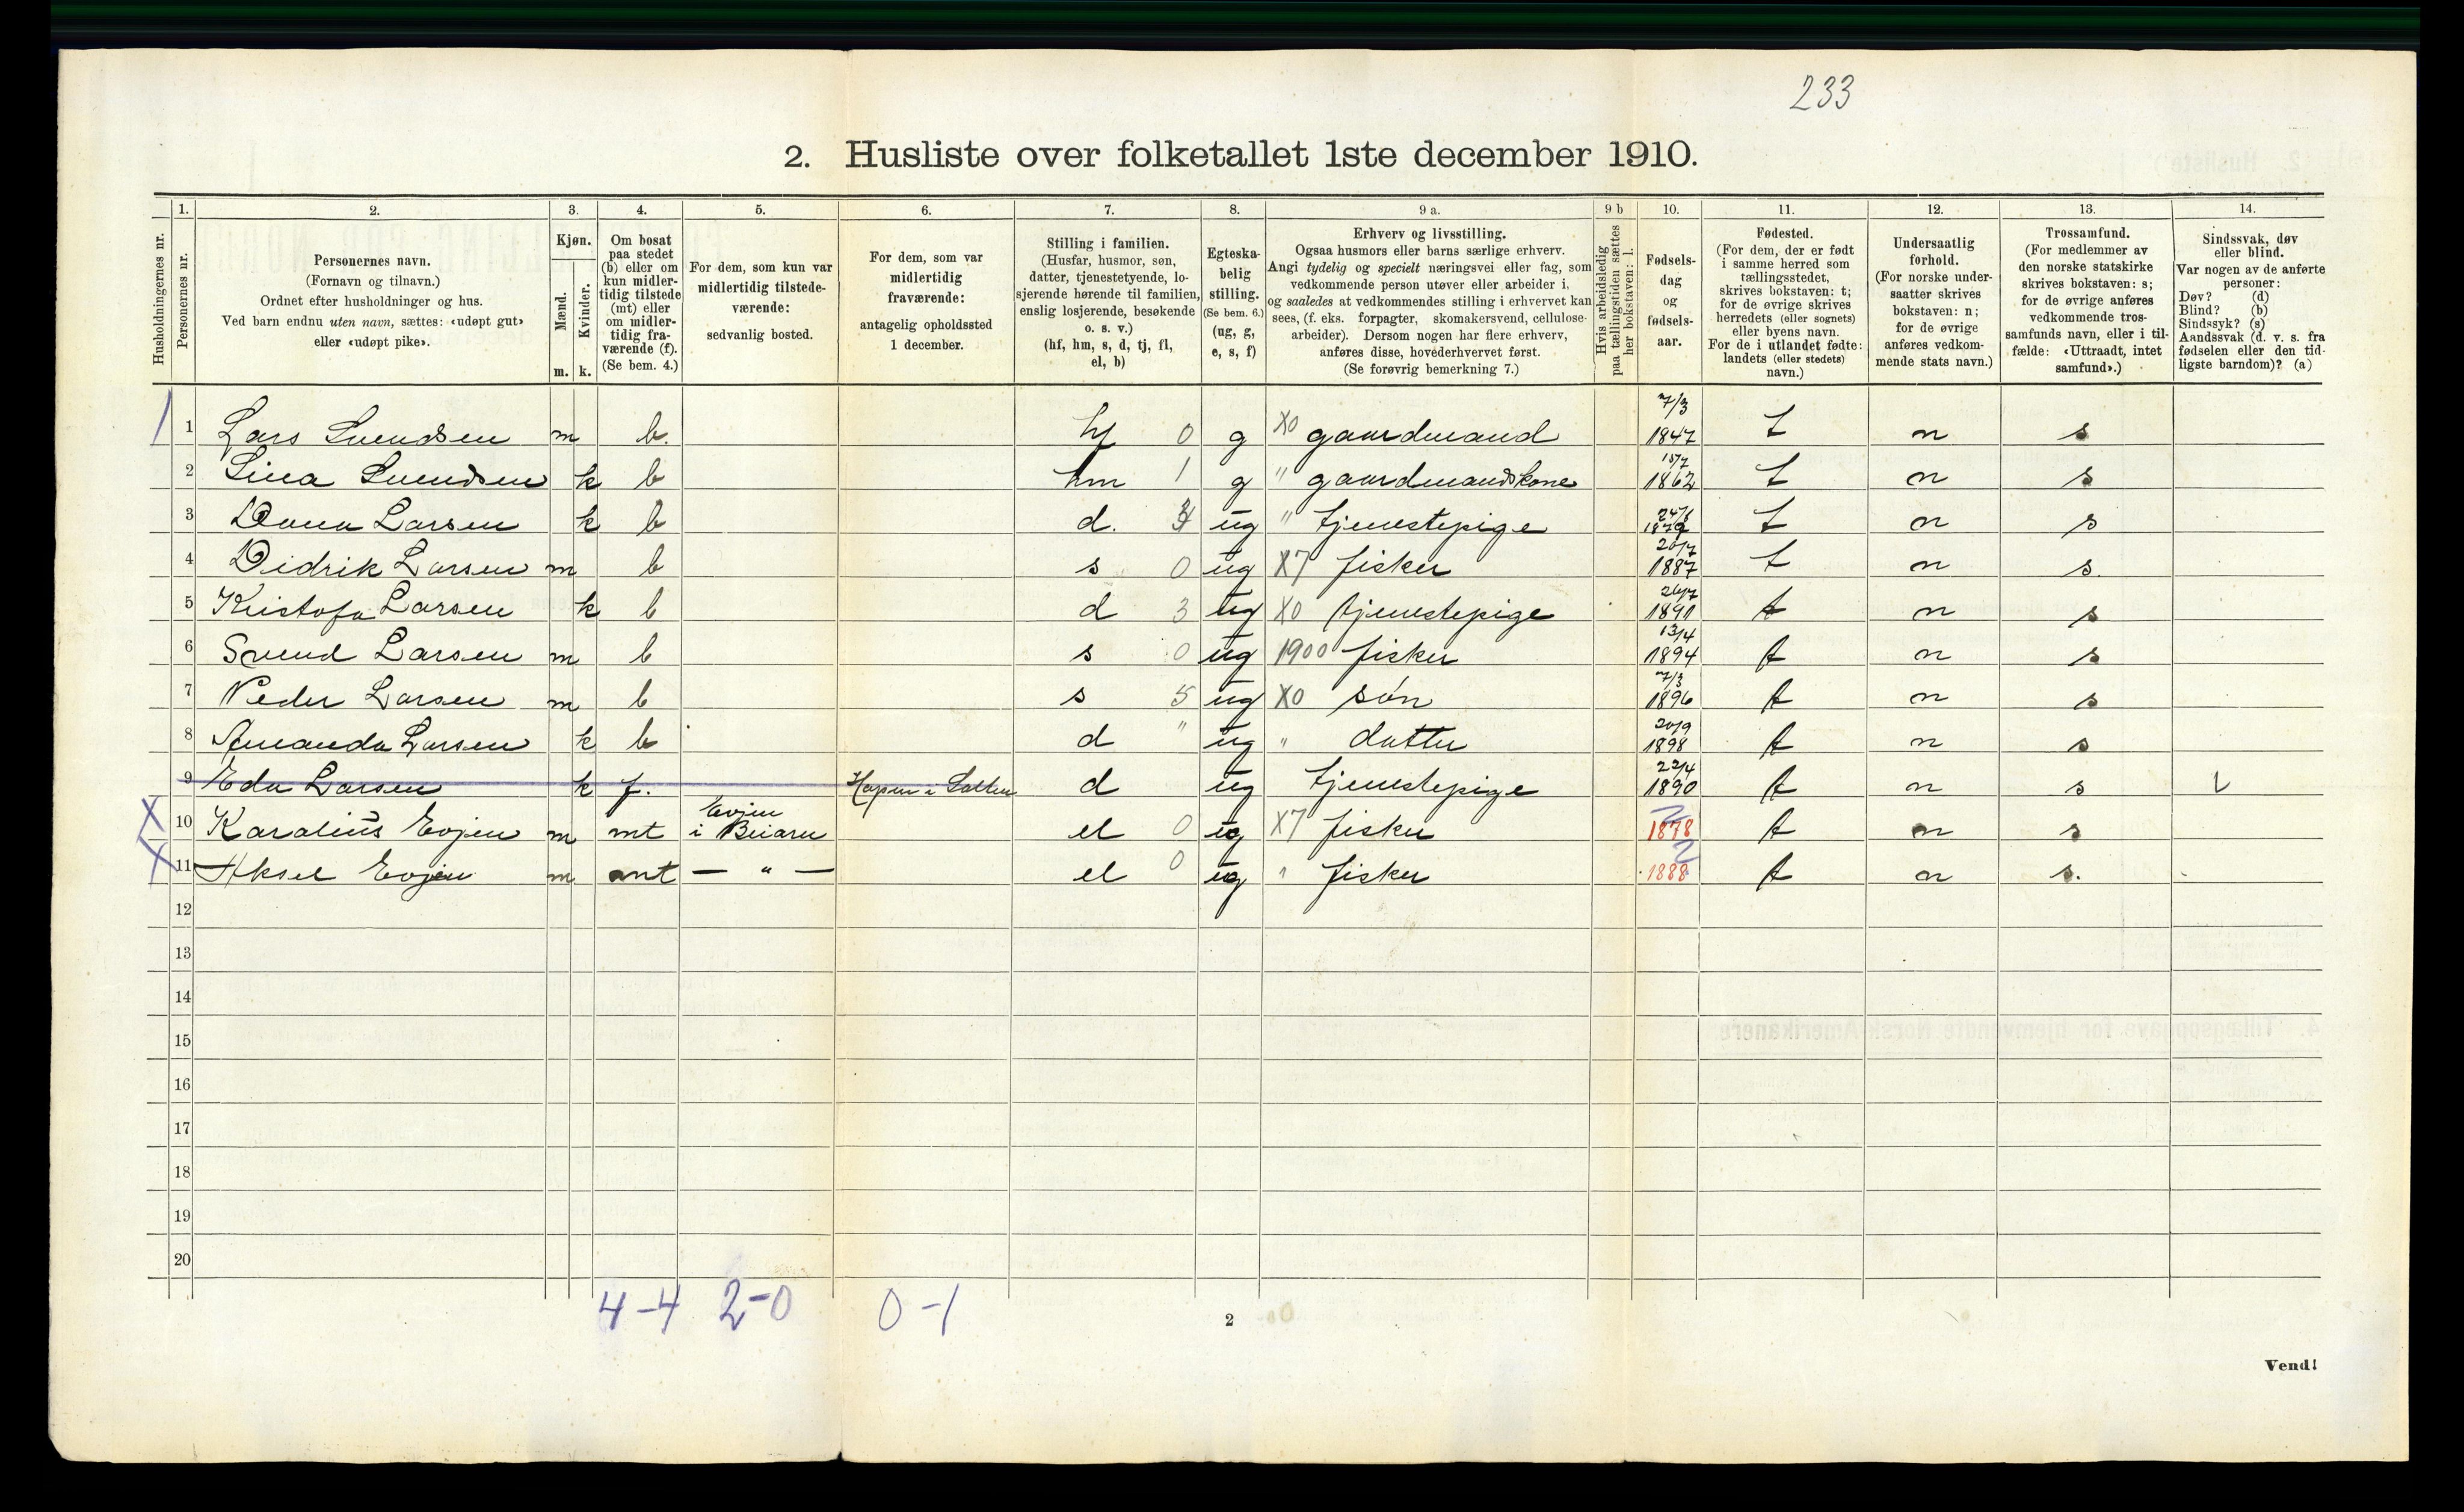 233
2. Husliste over folketallet 1ste december 1910.
Husholdningernes nr.
1.
Personernes nr.
2.
Personernes navn.
(Fornavn og tilnavn.)
Ordnet efter husholdninger og hus.
Ved barn endnu uten navn, sættes: «udøpt gut»
eller «udøpt pike».
3.
Kjøn.
Mænd.
Kvinder.
m. k.
4.
Om bosat
paa stedet
(b) eller om
kun midler-
tidig tilstede
(mt) eller
om midler-
tidig fra-
værende (f).
(Se bem. 4.)
5.
For dem, som kun var
midlertidig tilstede-
værende:
sedvanlig bosted.
6.
For dem, som var
midlertidig
fraværende:
antagelig opholdssted
1 december.
7.
Stilling i familien.
(Husfar, husmor, søn,
datter, tjenestetyende, lo-
sjerende hørende til familien,
enslig losjerende, besøkende
o. s. v.)
(hf, hm, s, d, tj, fl,
el, b)
8.
Egteska-
belig
stilling.
(Se bem. 6.)
(ug, g,
e, s, f)
9 a.
Erhverv og livsstilling.
Ogsaa husmors eller barns særlige erhverv.
Angi tydelig og specielt næringsvei eller fag, som
vedkommende person utøver eller arbeider i,
og saaledes at vedkommendes stilling i erhvervet kan
sees, (f. eks. forpagter, skomakersvend, cellulose-
arbeider). Dersom nogen har flere erhverv,
anføres disse, hovederhvervet først.
(Se forøvrig bemerkning 7.)
9 b
Hvis arbeidsledig
paa tællingstiden sættes
her bokstaven: l.
10.
Fødsels-
dag
og
fødsels-
aar.
11.
Fødested.
(For dem, der er født
i samme herred som
tællingsstedet,
skrives bokstaven: t;
for de øvrige skrives
herredets (eller sognets)
eller byens navn.
For de i utlandet fødte:
landets (eller stedets)
navn.)
12.
Undersaatlig
forhold.
(For norske under-
saatter skrives
bokstaven: n;
for de øvrige
anføres vedkom-
mende stats navn.)
13.
Trossamfund.
(For medlemmer av
den norske statskirke
skrives bokstaven: s;
for de øvrige anføres
vedkommende tros-
samfunds navn, eller i til-
fælde: «Uttraadt, intet
samfund».)
14.
Sindssvak, døv
eller blind.
Var nogen av de anførte
personer:
Døv? (d)
Blind? (b)
Sindssyk? (s)
Aandssvak (d. v. s. fra
fødselen eller den tid-
ligste barndom)? (a)
1 1 Lars Svendsen m b. hf 0 g X0 gaardmand 7/3 1847 t n s
2 Lina Svendsen k b hm 1 g " gaardmandskone 15/7 1862 t n s
3 Larsen k b d. ug " tjenestepige t n s
4 Didrik Larsen m b s 0 ug X7 fisker 20/7 1887 t n s.
5 Kristofa Larsen k b d 3 ug X0 tjenestepige 26/7 1891 t n s
6 Svend Larsen m b s 0 ug 1900 fisker 13/4 1894 t n s
7 Peder Larsen m b s 5 ug X0 søn 7/3 1896 t n s
8 Amanda Larsen k b d " ug " datter 20/9 1898 t n s
9 Eda Larsen k f. Hopen i Salten d ug tjenestepige 22/4 1890 t n s
X 10 Karalius Evjen m mt Evjen i Beiarn el 0 ug X7 fisker 1878 t n s
X 11 Aksel Evjen m mt — " — el 0 ug " fisker 1888 t n s.
12
13
14
15
16
17
18
19
20
4-4 2-0 0-1
2
Vend!